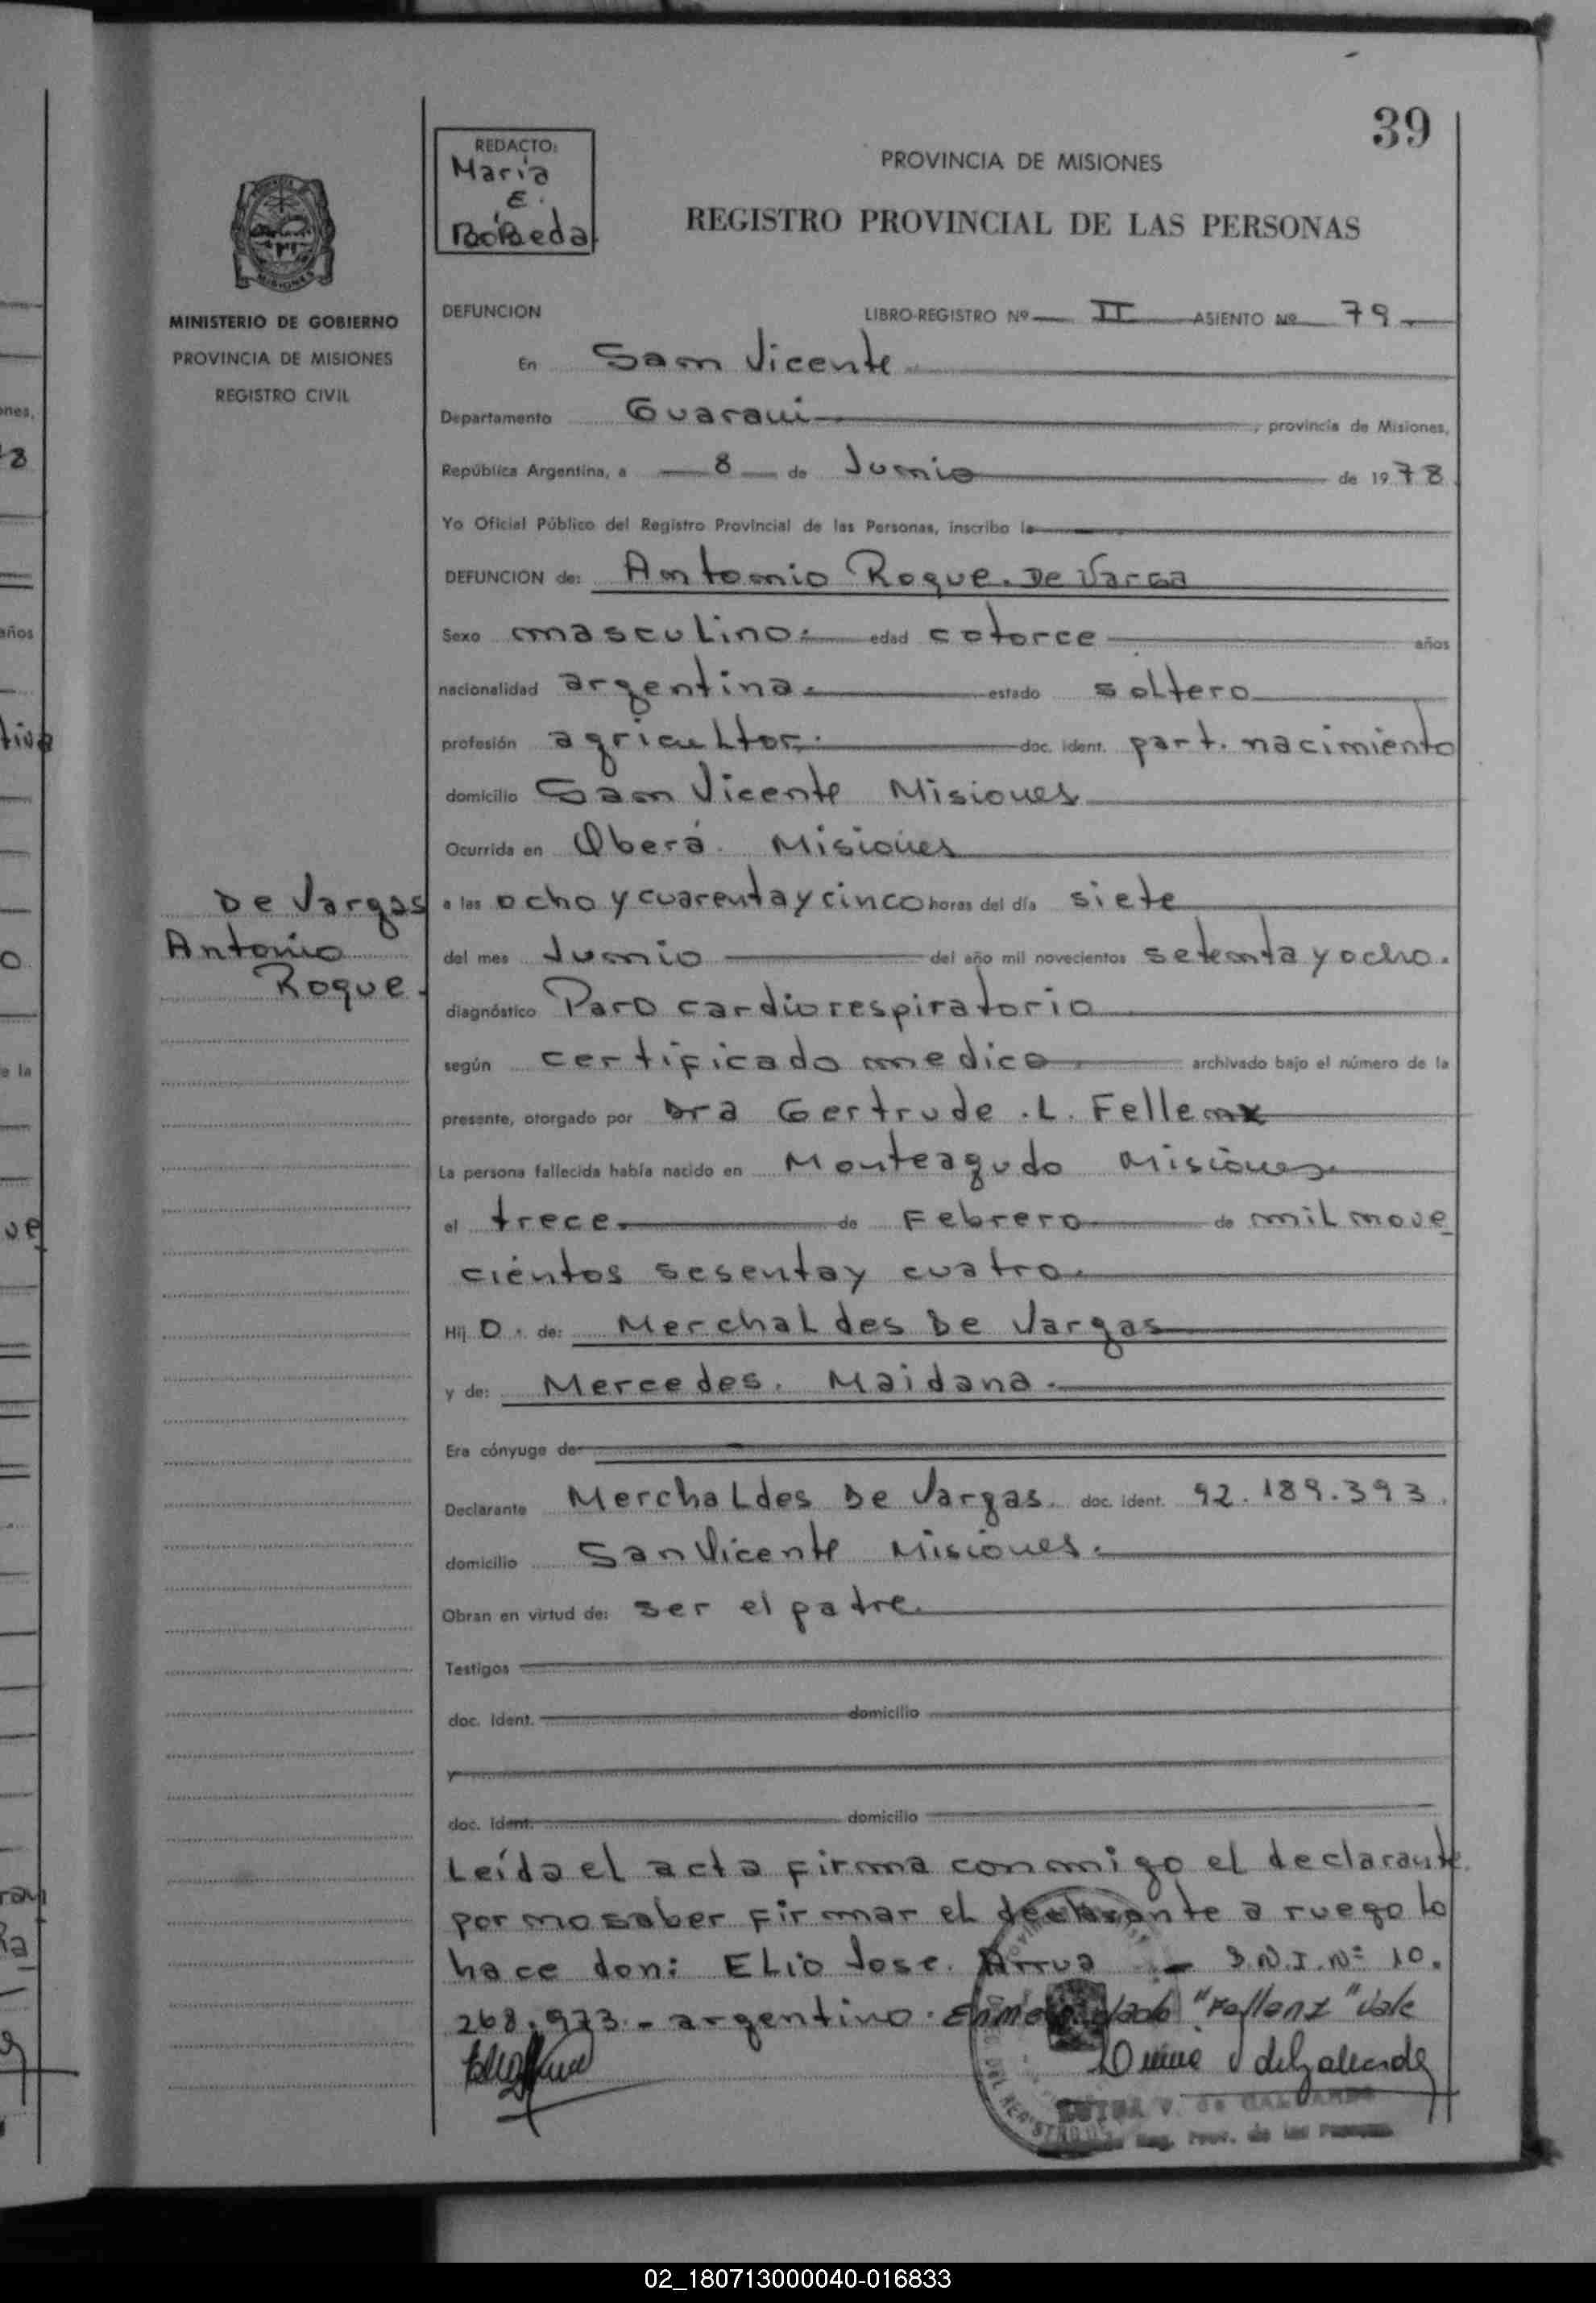 39
REDACTO:
Maria
E.
BoBeda
PROVINCIA DE MISIONES
REGISTRO PROVINCIAL DE LAS PERSONAS
MISIONES
MINISTERIO DE GOBIERNO
PROVINCIA DE MISIONES
REGISTRO CIVIL
DEFUNCION LIBRO-REGISTRO Nº II ASIENTO Nº 79
En San Vicente
Departamento Guarani, provincia de Misiones,
República Argentina, a 8 de Junio de 1978
Yo Oficial Público del Registro Provincial de las Personas, inscribo la
DEFUNCION de: Antonio Roque. De Varga
Sexo masculino. edad catorce años
nacionalidad argentina. estado soltero
profesión agricultor. doc. ident. part. nacimiento
domicilio San Vicente Misiones
Ocurrida en Oberá Misiones
a las ocho y cuarenta y cinco horas del día siete
del mes Junio del año mil novecientos setenta y ocho.
De Vargas
Antonio
Roque.
diagnóstico Paro cardiorespiratorio
según certificado medico archivado bajo el número de la
presente, otorgado por Dra Gertrude . L. Fellenx
La persona fallecida había nacido en Monteagudo Misiones
el trece. de Febrero de mil nove
cientos sesenta y cuatro.
Hij o. de: Merchaldes De Vargas
y de: Mercedes. Maidana.
Era cónyuge de
Declarante Merchaldes De Vargas. doc. ident. 92.189.393.
domicilio San Vicente Misiones.
Obran en virtud de: ser el padre.
Testigos
doc. Ident. domicilio
y
doc. Ident. domicilio
Leída el acta firma conmigo el declarante.
por no saber firmar el declarante a ruego lo
hace don: Elio Jose. Arrua - D.N.I. Nº 10.
268.973. - argentino. Enmendado "Fellenz" Vale
V. de
Reg. Prov. de las Personas
02_180713000040-016833